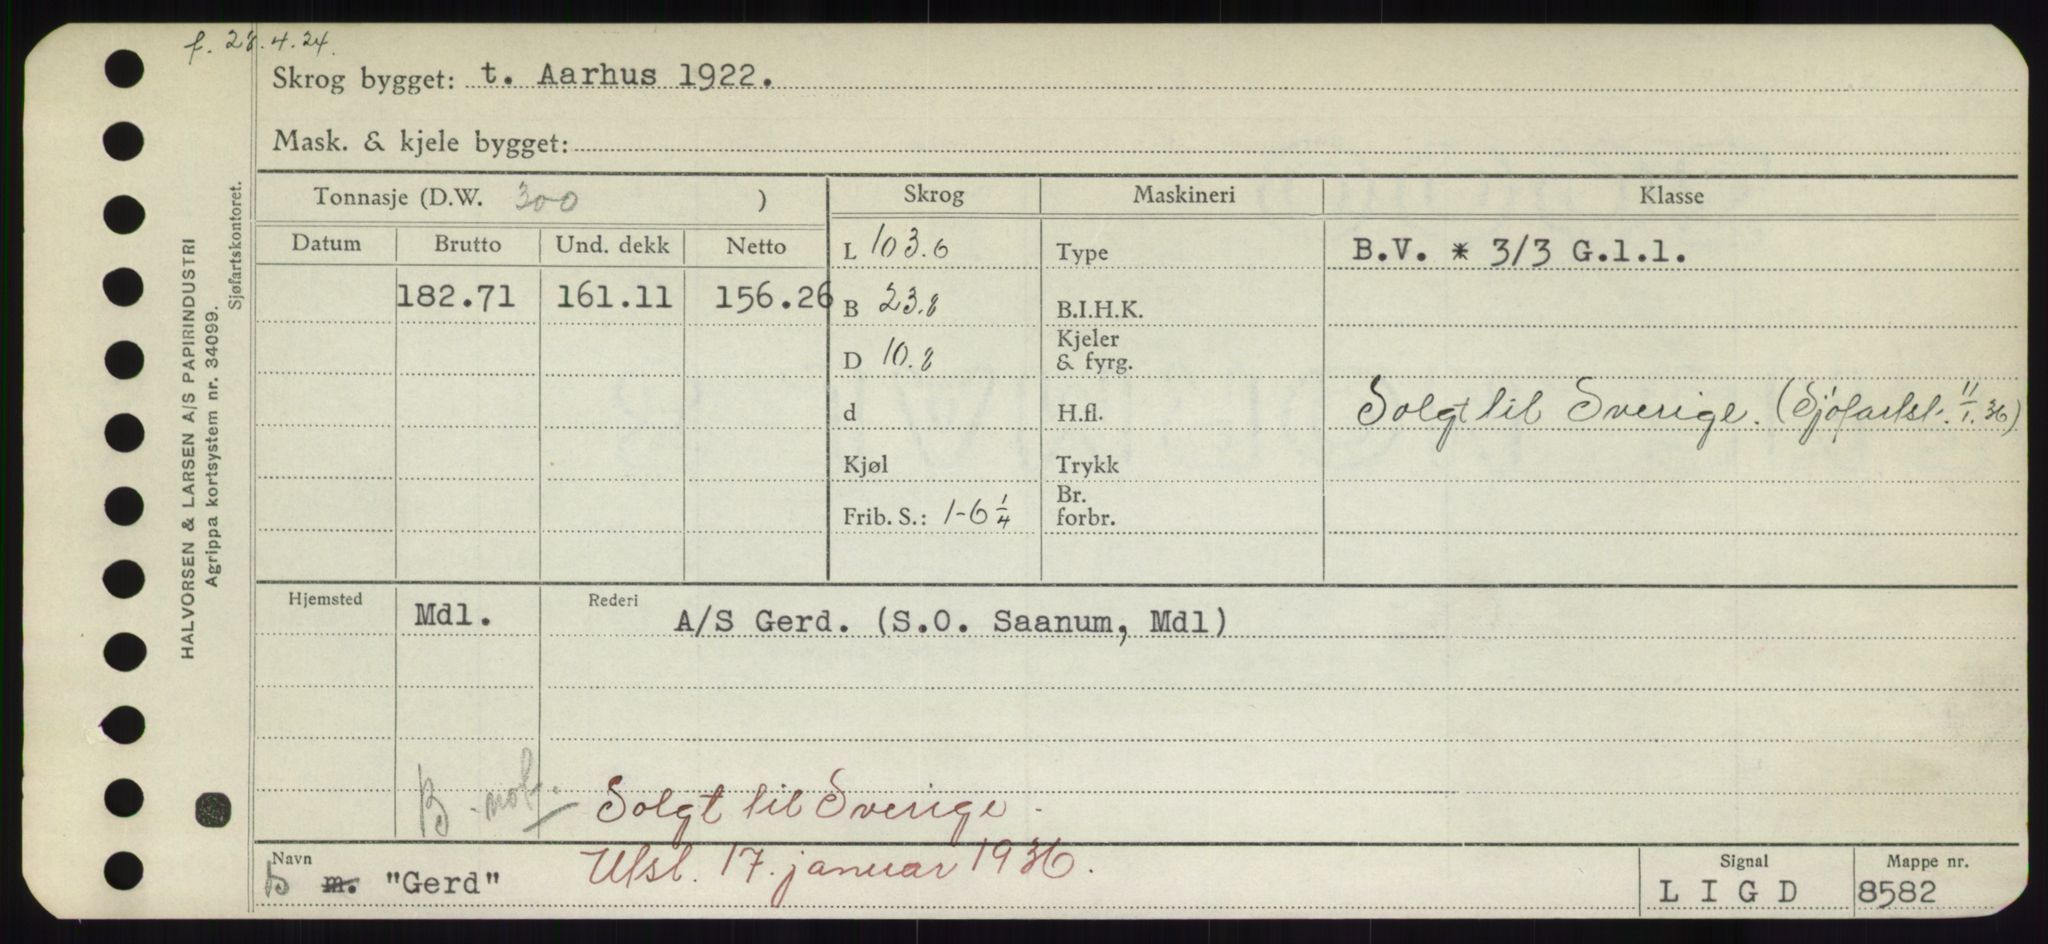 f. 28.4.24.
Skrog bygget: t. Aarhus 1922.
Mask. & kjele bygget:
Tonnasje (D.W. 300 )
Skrog
Maskineri
Klasse
Datum
Brutto
Und. dekk
Netto
182.71
161.11
156.26
L 103.6
B 23.8
D 10.8
d
Kjøl
Frib. S.: 1-6 1/4
Type
B.I.H.K.
Kjeler
& fyrg.
H.fl.
Trykk
Br.
forbr.
B.V. * 3/3 G.l.l.
Solgt til Sverige. (Sjöfartst. 11/1.36)
Hjemsted
Mdl.
Rederi
A/S Gerd. (S.O. Saanum, Mdl)
B - mot.
Solgt til Sverige.
Utsl. 17. januar 1936.
Navn
B m. "Gerd"
Signal
L I G D
Mappe nr.
8582
HALVORSEN & LARSEN A/S PAPIRINDUSTRI
Agrippa kortsystem nr. 34099.
Sjøfartskontoret.